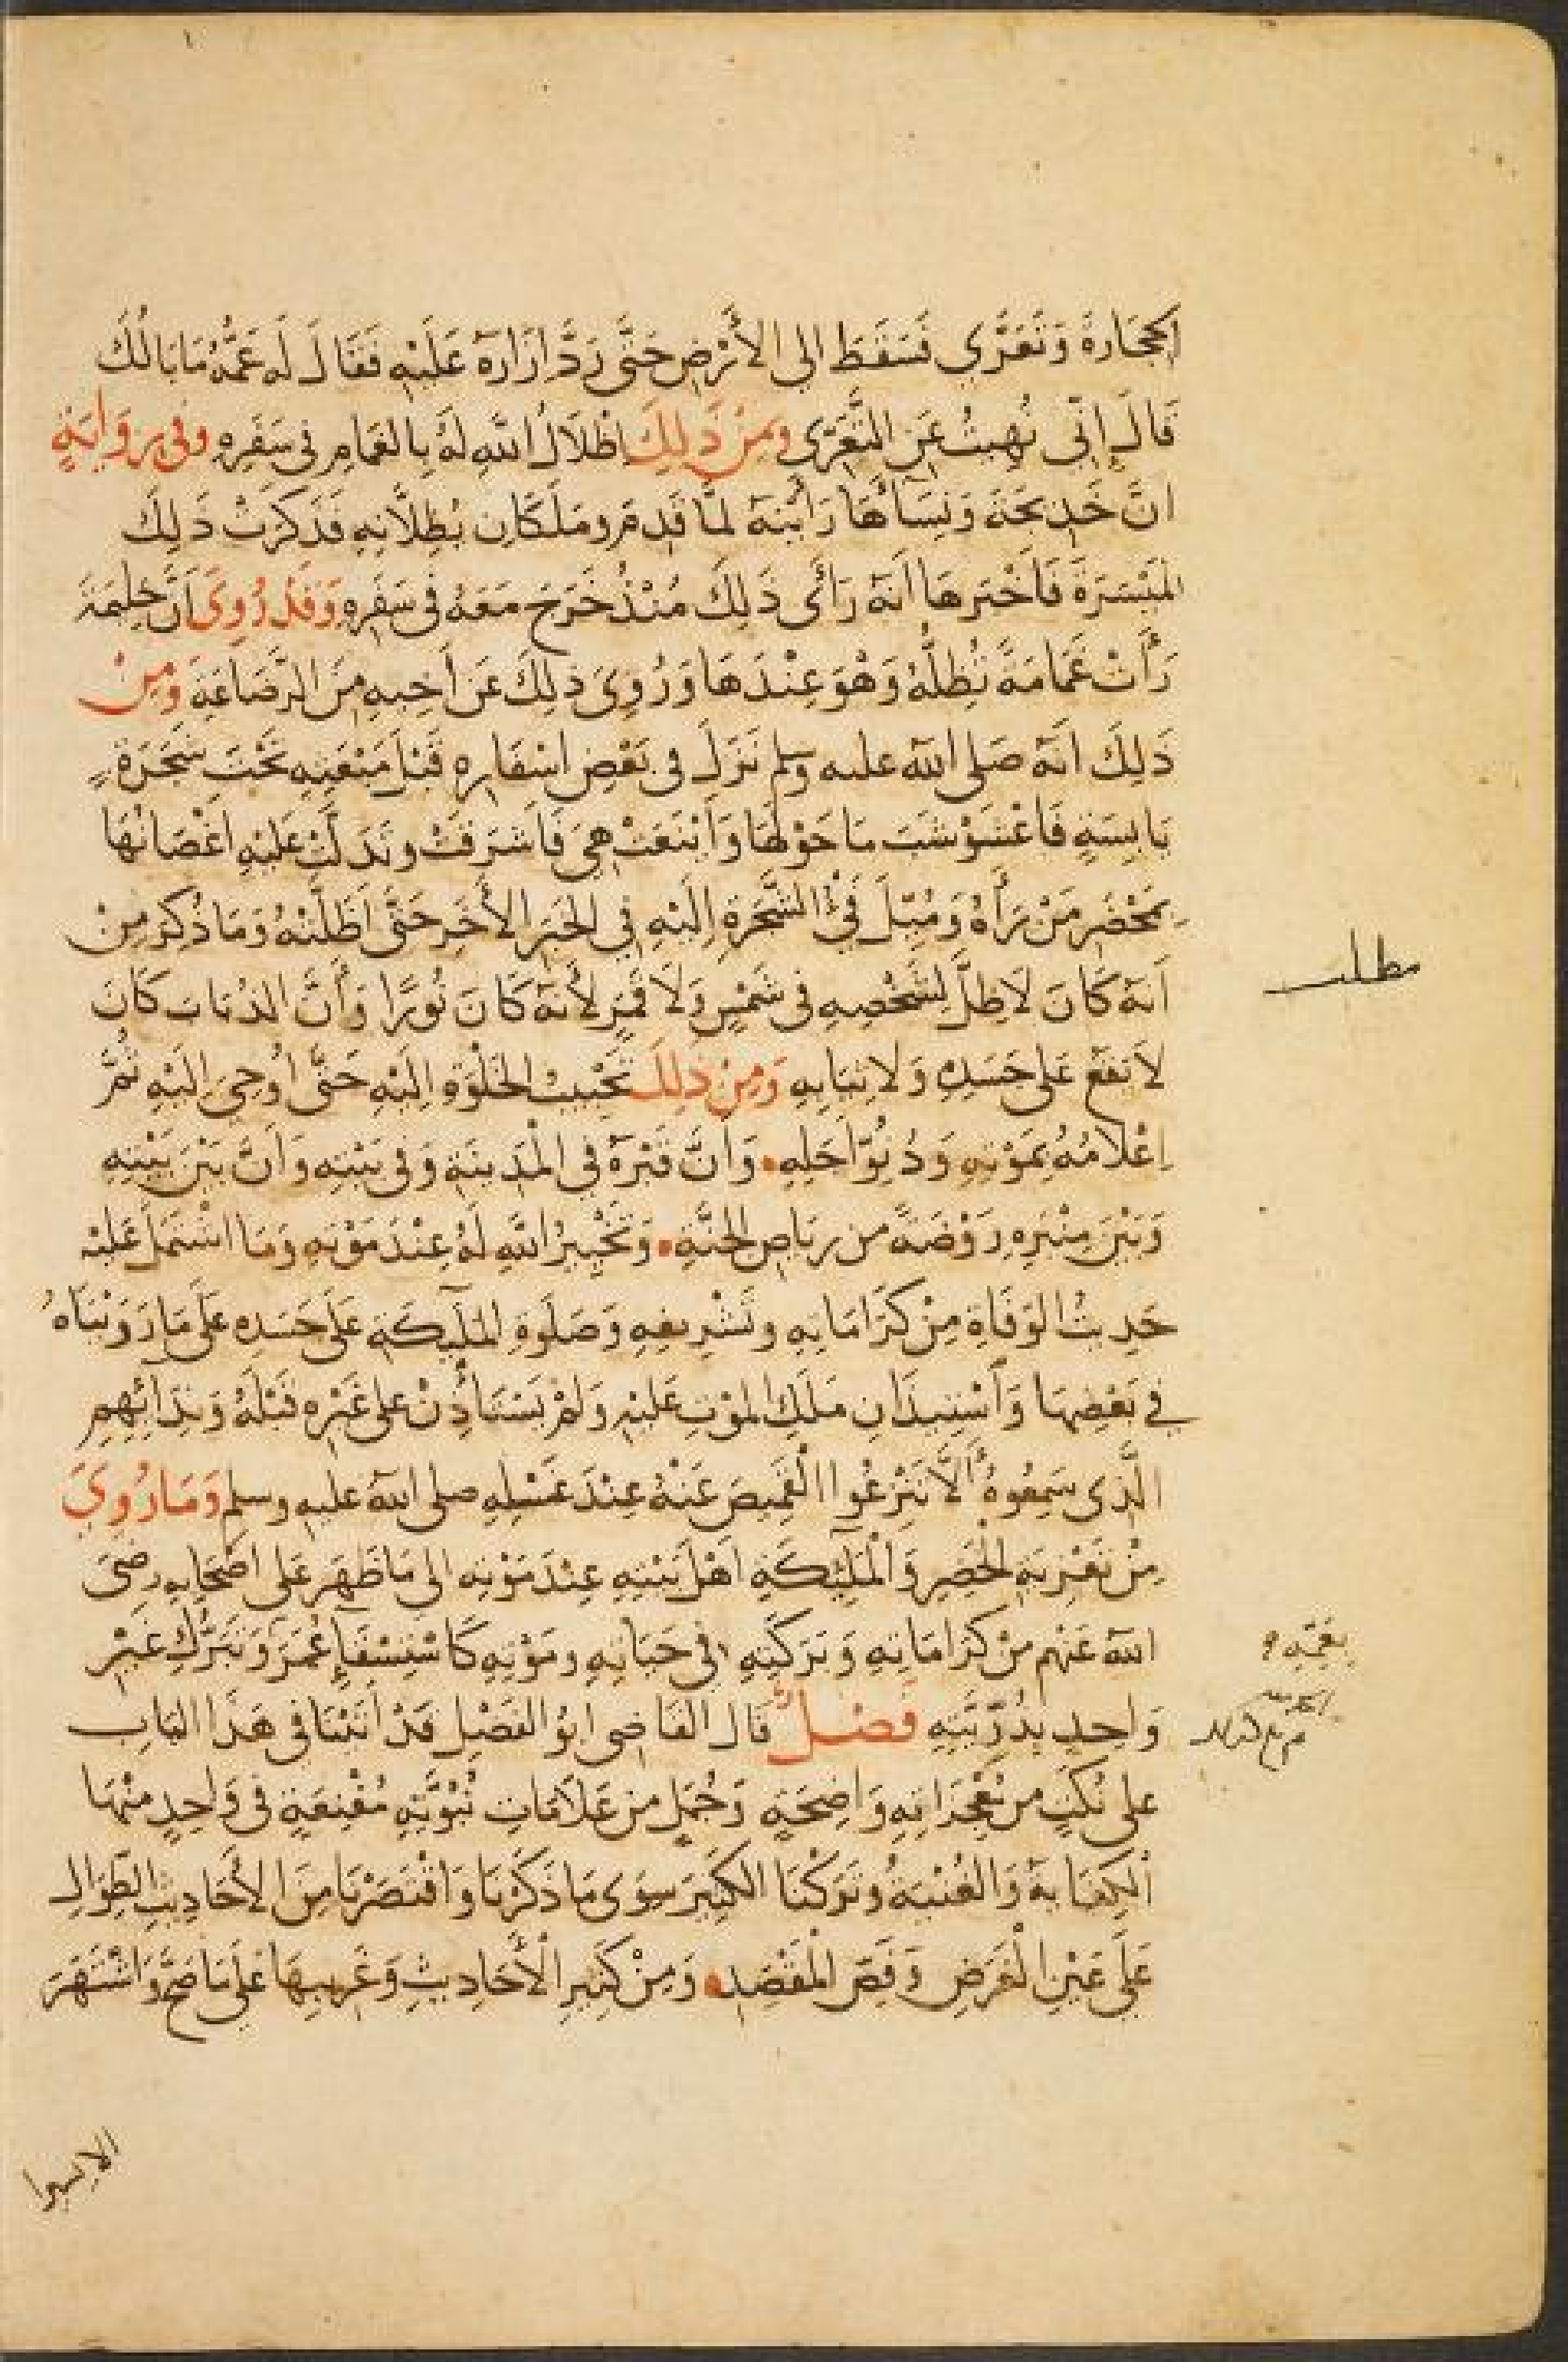 الحجارة وَتَعَرَّي فَسَقَطَ الي الأَرْضِ حَتَّى رَدَّ ازَارَهُ عَلَيْهِ فَقَالَ لَه عَمُّهُ مَا بَالُكَ
قَالَ إِنّي نُهِيتُ عَنِ التَّعَرّي ومِنْ ذَلِكَ اظْلَالُ اللّهِ لَهُ بِالغَمَامِ فى سَفَرِهِ وفى رِوَايَةٍ
انَّ خَدِيجَةَ وَنِسَاءَهَا رَأَيْنَهُ لمَّا قَدِمَ ومَلَكَانِ يُظِلَّانِهِ فَذَكَرَتْ ذَلِكَ
لمَيْسَرَةَ فَاَخْبَرهَا اَنَّهُ رَأَى ذَلِكَ مُنْذُ خَرَجَ مَعَهُ فى سَفَرِهِ وَقَدْ رُوِىَ اَنَّ حَلِيمَةَ
رَأَتْ غَمَامَةً تُظِلُّهُ وَهْوَ عِنْدَهَا وَرُوِىَ ذلِكَ عَن اَخِيهِ مِنَ الرَّضَاعَةِ وَمِنْ
ذَلِكَ انَّهُ صَلى الله عليه وسلم نَزَلَ فى بَعْضِ اسْفَارِهِ قَبْلَ مَبْعَثِهِ تَحْتَ شَجَرَةٍ
يَابِسَةٍ فَاعْشَوْشَبَ مَا حَوْلَهَا وَاَيْنَعَتْ هِىَ فَاَشرَقَتْ وتَدَلَّتْ عَلَيْهِ اغْصَانُهَا
بِمَحْضَرِ مَنْ رَأَهُ وَمُيِّلَ فَيْءُ الشَّجَرَةِ اِلَيْهِ فِي الخَبَرِ الأَخَرِ حَتَّى اَظَلَّتْهُ وَمَا ذُكِرَ مِنْ
اَنَّهُ كَانَ لَا ظِلَّ لِشَخْصِهِ فى شَمْسٍ وَلَا قَمَرٍ لأَنَّهُ كَانَ نُورًا وَأَنَّ الذُبَابَ كَانَ
لَا تَقَعُ عَلى جَسَدِهِ وَلا ثِيَابِهِ وَمِنْ ذَلِكَ تَحْبِيبُ الخَلْوَةِ اِلَيْهِ حَتَّى اُوحِىَ اِلَيْهِ ثُمَّ
اِعْلَامُهُ بِمَوْتِهِ وَدُنُوِّ اَجَلِهِ وَاَنَّ قَبْرَهُ فِي الْمَدِينَةِ وَفى بَيْتِهِ وَاَنَّ بَيْنَ بَيْتِهِ
وَبَيْنَ مِنْبَرِهِ رَوْضَةً من رِيَاضِ الجَنَّةِ وَتَخْيِيرُ اللَّهِ لَهُ عِنْدَ مَوْتِهِ وَمَا اشْتَمَلَ عَلَيْهِ
حَدِيثُ الوَفَاةِ مِنْ كَرَامَاتِهِ وتَشْرِيفِهِ وَصَلَوةِ المَلَٓيكَةِ عَلَى جَسَدِهِ عَلَى مَا رَوَيْنَاهُ
فِي بَعْضِهَا وَاسْتِيذَانِ مَلَكِ المَوْتِ عَلَيْهِ وَلَمْ يَسْتَأْذِنْ عَلى غَيْرِهِ قَبْلَهُ وَنِدَائِهِمِ
الَّذِى سَمِعُوهُ أَلَّا تَنْزِعُوا القَمِيصَ عَنْهُ عِنْدَ غَسْلِهِ صلى الله عليه وسلم وَمَا رُوِيَ
مِنْ تَعْزِيَةِ الْخَضِرِ وَالْمَلَٓيِكَةِ اَهْلَ بَيْتِهِ عِنْدَ مَوْتِهِ الى مَا ظَهَرَ عَلى اَصْحَابِهِ رضِىَ
اللّه عَنْهم مِنْ كَرَامَاتِهِ وَبَرَكَتِهِ فى حَيَاتِهِ ومَوْتِهِ كَاسْتِسْقَآءِ عُمَرَ وَتَبَرُّكِ غَيْرِ
وَاحِدٍ بِذُرّيَّتِهِ فَصْلٌ قَال القَاضِى ابُو الفَضْلِ قَدْ اَتَيْنَا فى هَذَا البَابِ
عَلى نُكَتٍ من مُعْجِزَاتِهِ وَاضِحَةٍ وَجُمَلٍ مِن عَلَامَاتِ نُبُوَّتِهِ مُقْنِعَةٍ فى وَاحِدٍ مِنْهَا
اَلكِفَايَةُ وَالغُنْيَةُ وتَرَكْنَا الكَثِيرَ سِوَى مَا ذَكَرْنَا وَاقْتَصَرْنَا مِنَ الأَحَادِيثِ الطِّوَالِ
عَلَى عَيْنِ الْغَرَضِ وَفَصِّ الْمَقْصَدِ وَمِنْ كَثِيرِ الْأَحَادِيثِ وَغَرِيبِهَا عَلى مَا صَحَّ وَاشْتَهَرَ
مطلب
بعَمِّهِ
الا يسيرا